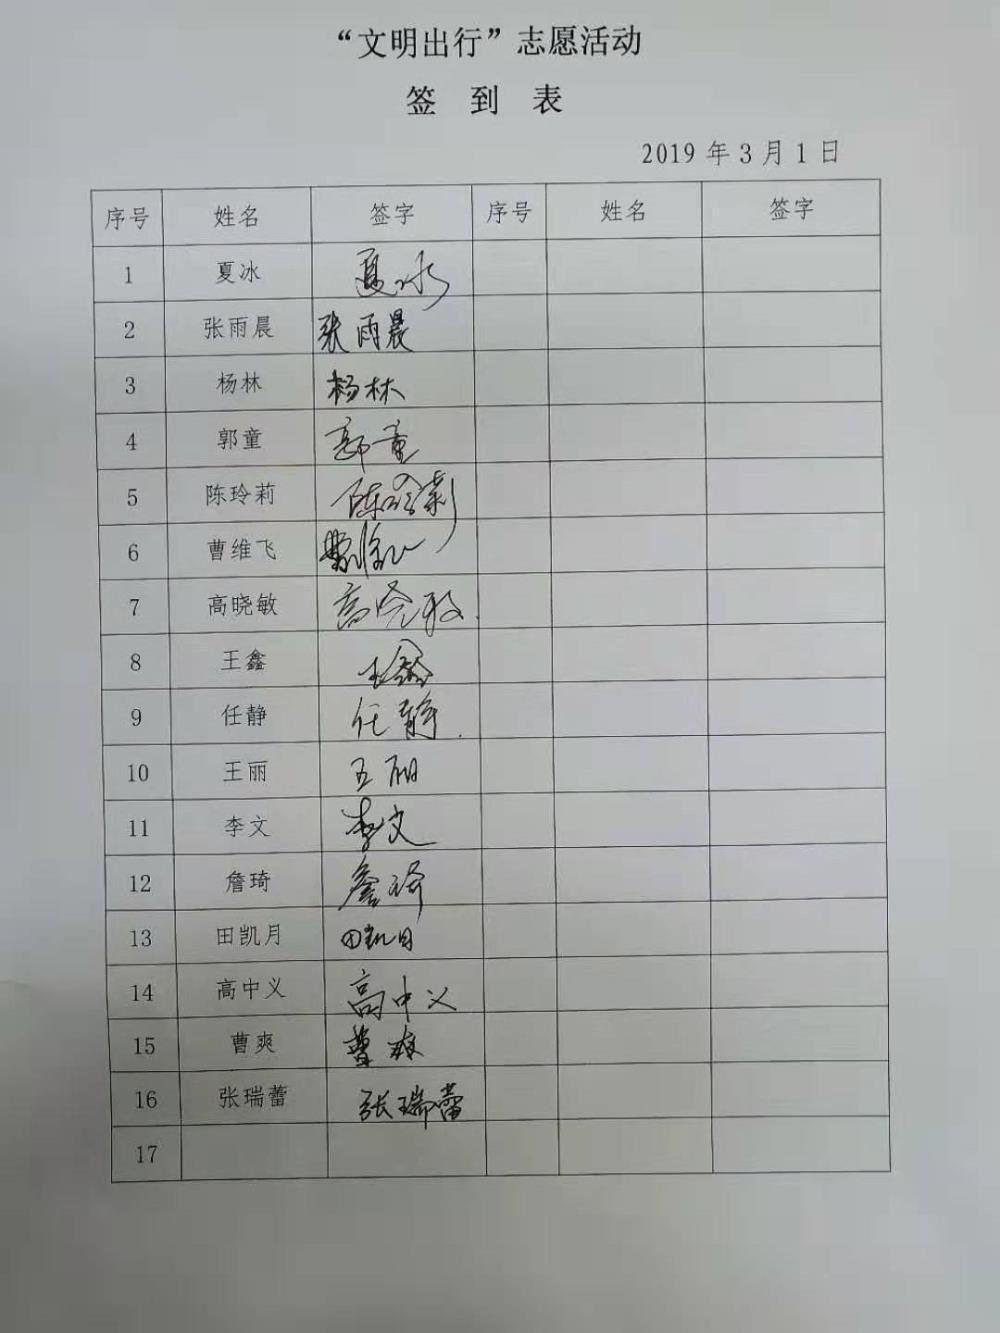 “文明出行”志愿活动
签 到 表
2019 年 3 月 1 日
序号 姓名 签字 序号 姓名 签字
1 夏冰 夏冰
2 张雨晨 张雨晨
3 杨林 杨林
4 郭童 郭童
5 陈玲莉 陈玲莉
6 曹维飞 曹维飞
7 高晓敏 高晓敏
8 王鑫 王鑫
9 任静 任静
10 王丽 王丽
11 李文 李文
12 詹琦 詹琦
13 田凯月 田凯月
14 高中义 高中义
15 曹爽 曹爽
16 张瑞蕾 张瑞蕾
17